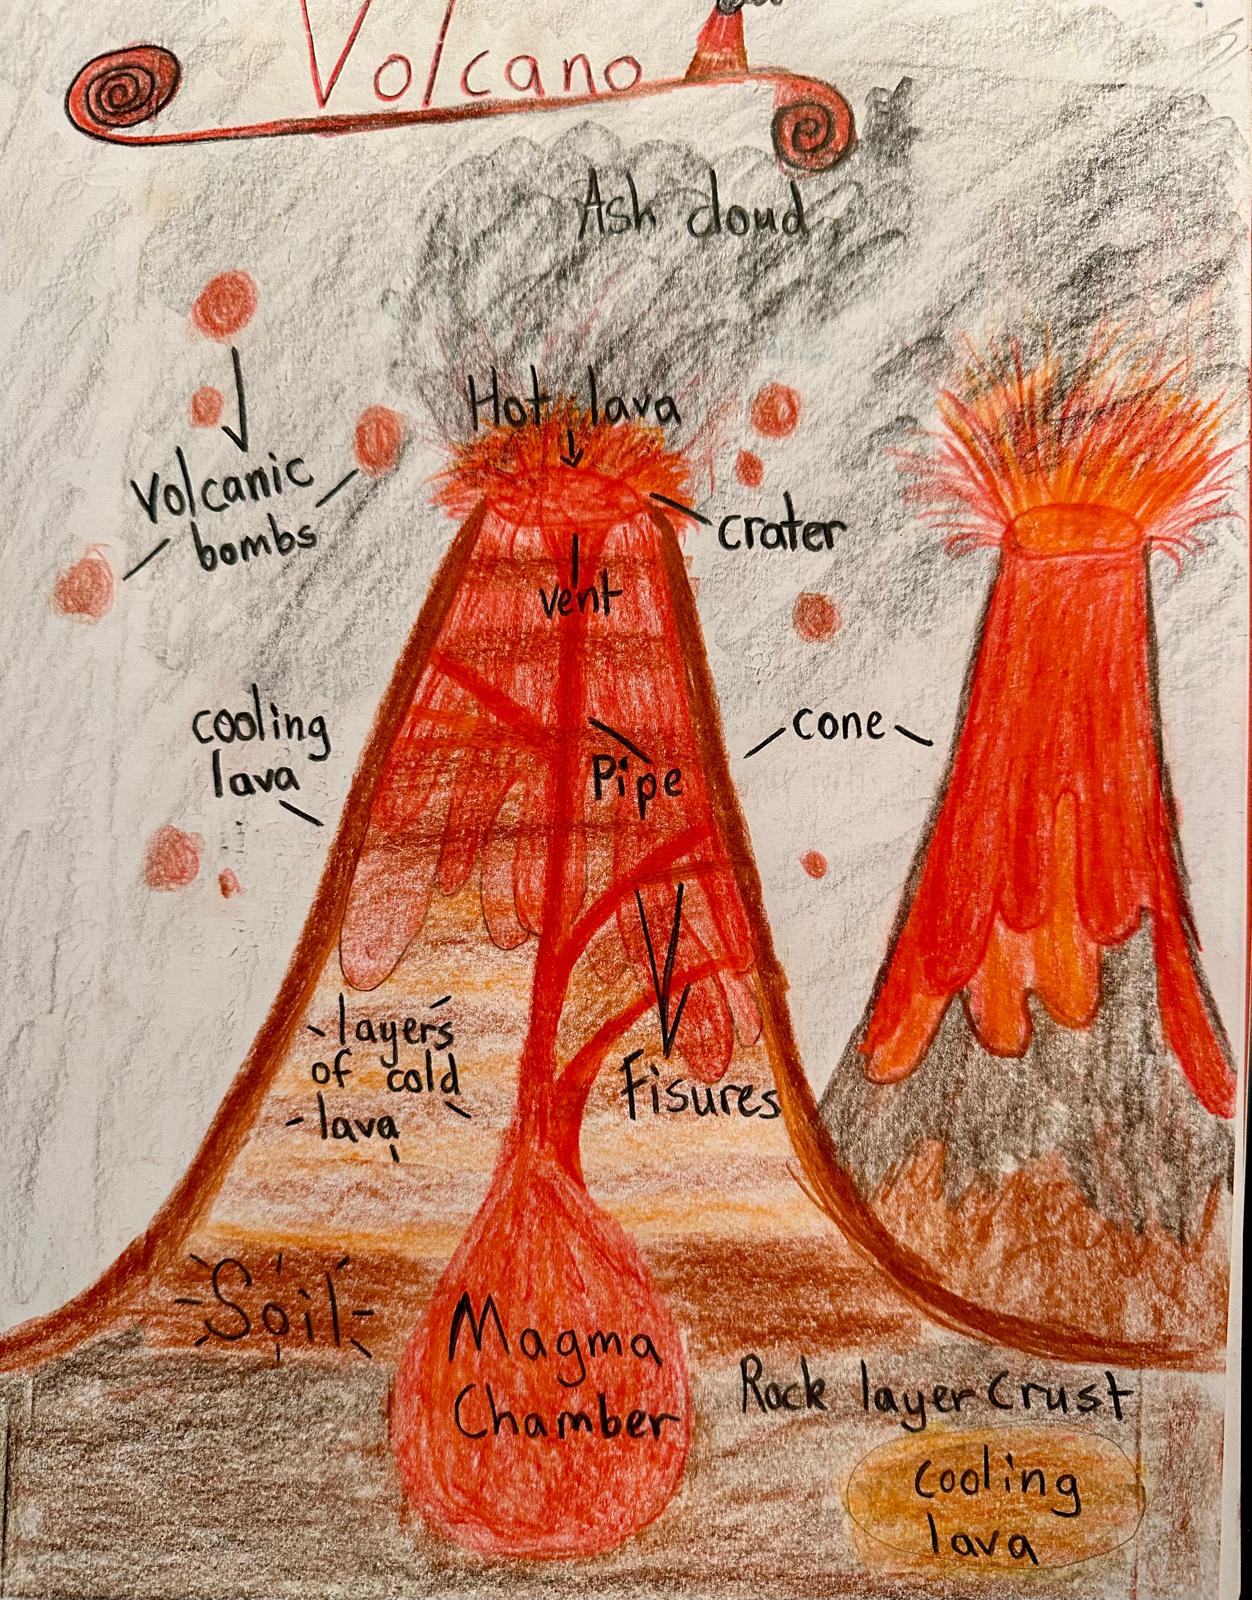 Volcano
Ash cloud
Hot lava
Volcanic
bombs
crater
vent
cooling
lava
cone
Pipe
layers
of cold
lava
Fisures
Soil
Magma
Chamber
Rock layer Crust
cooling
lava